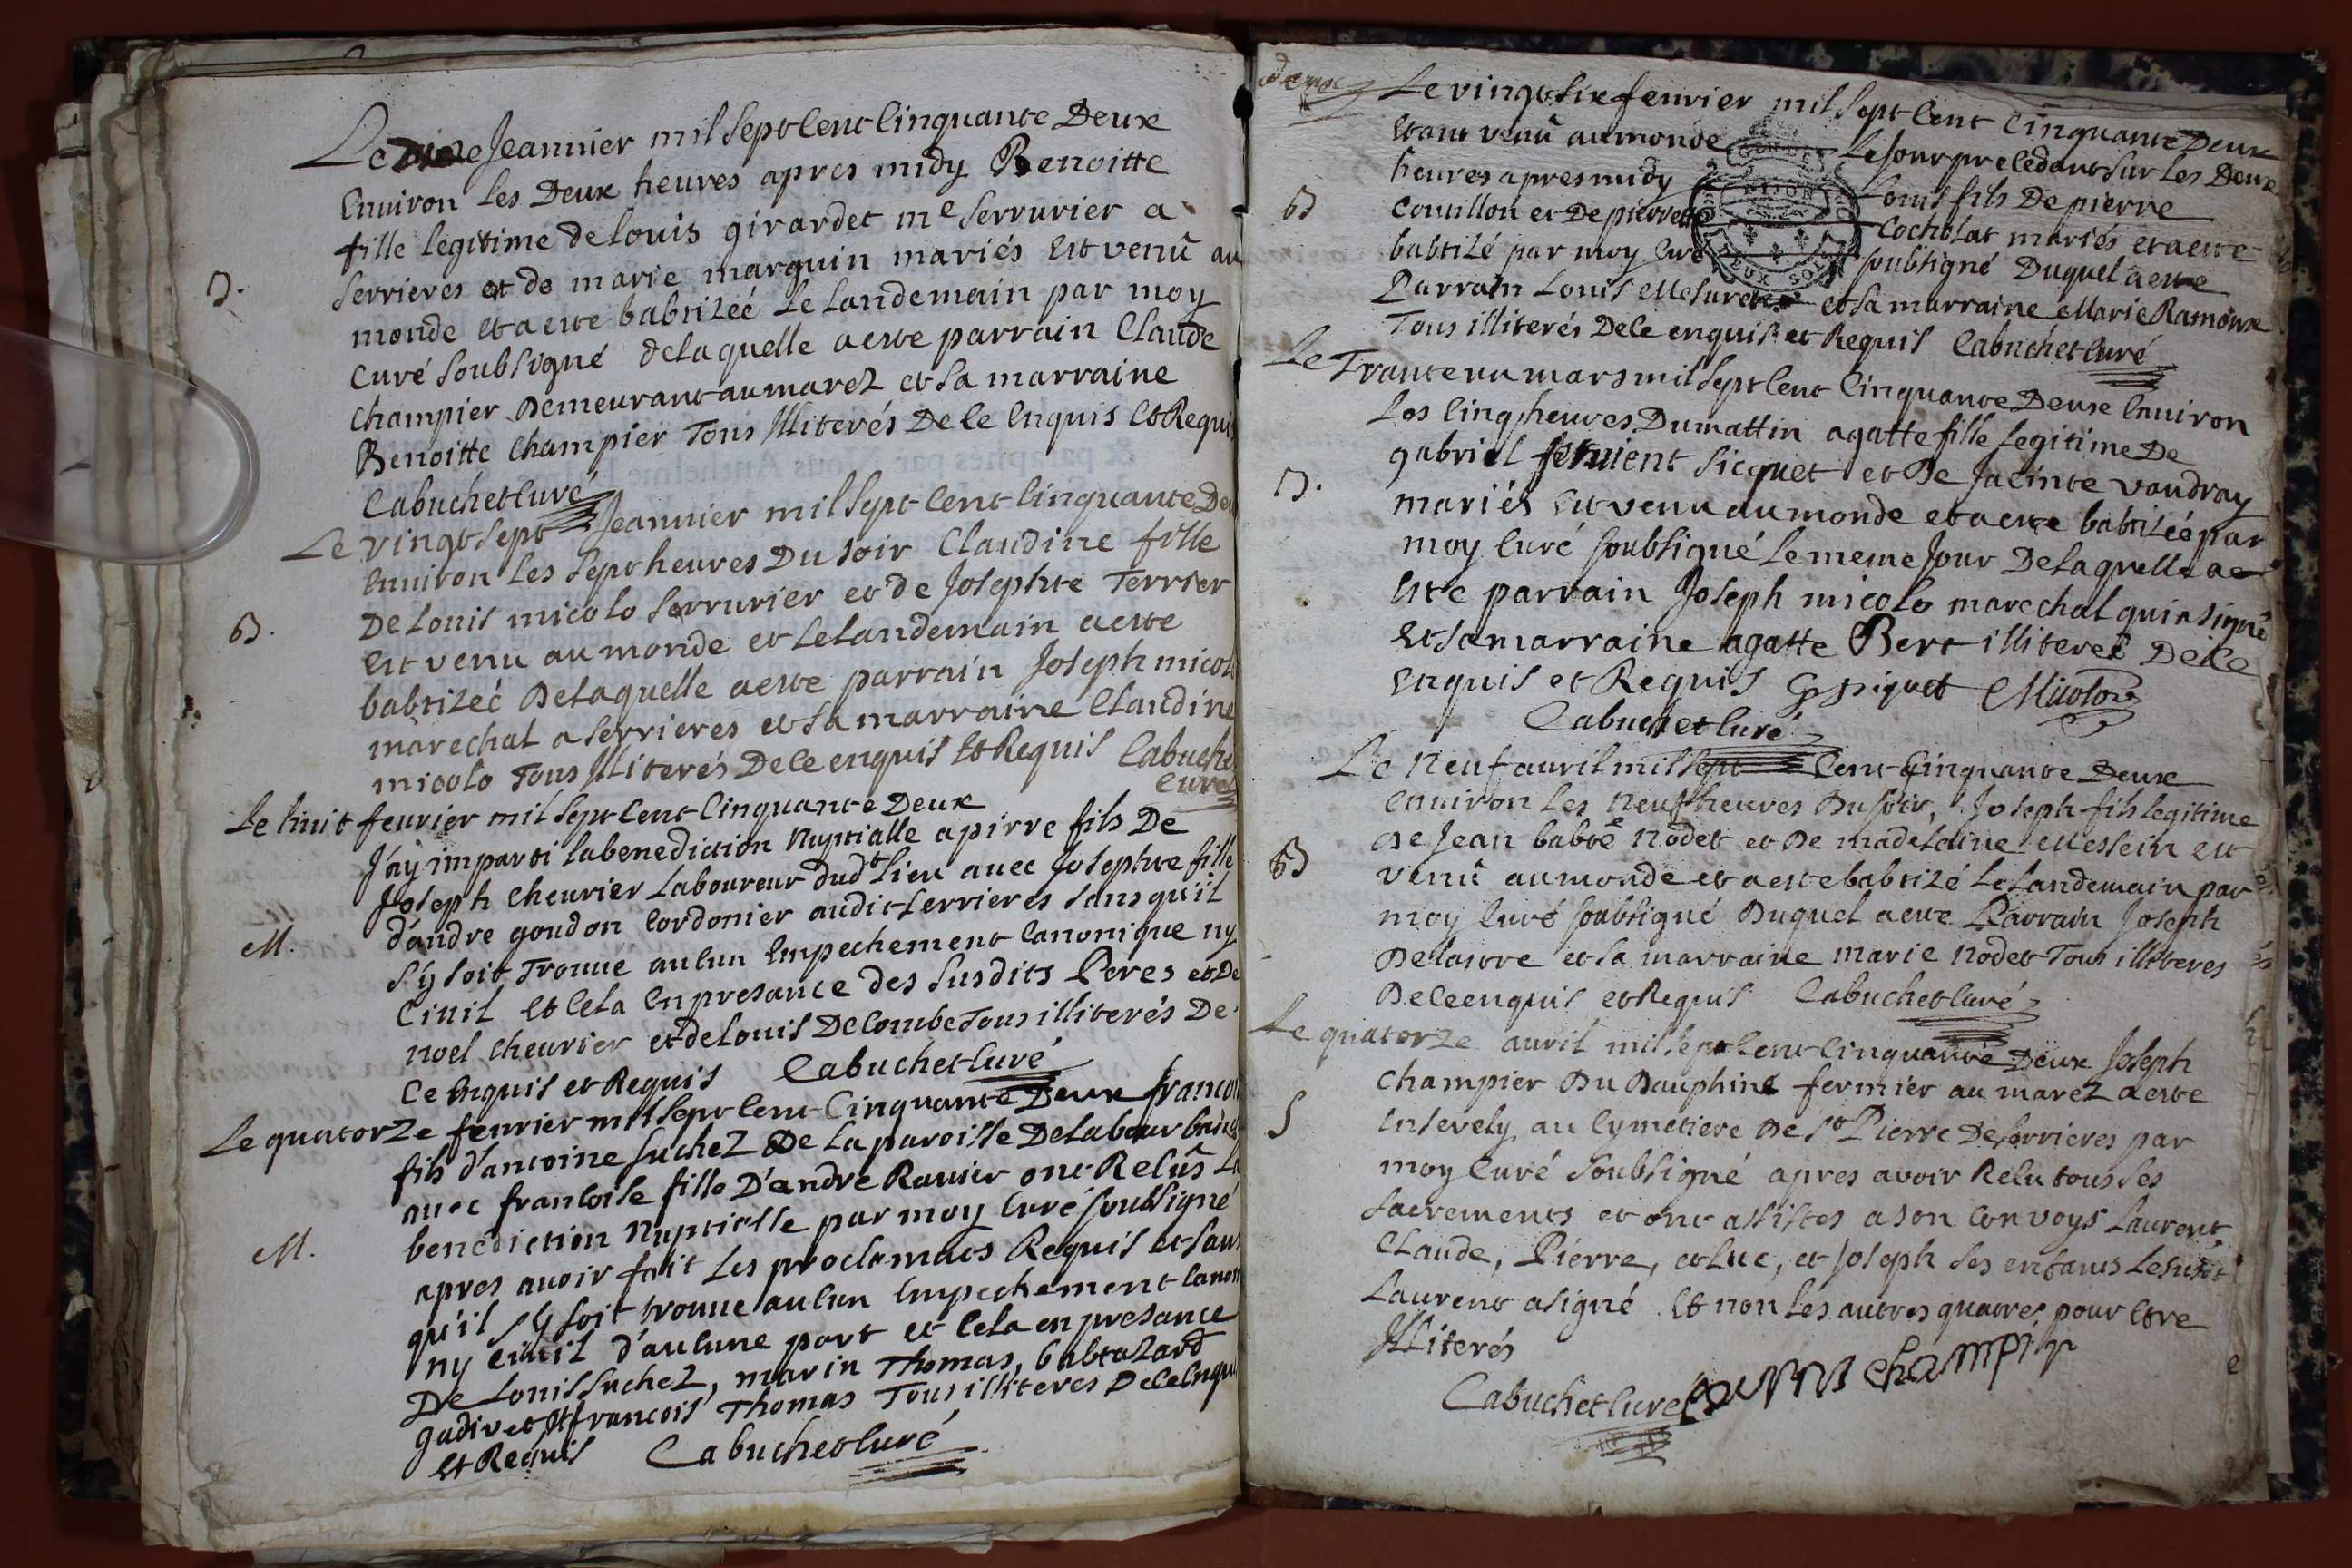 Le Jeanuier mil sept cent cinquante Deux
Enuiron les Deux heures apres midy Benoitte
fille legitime de louis girardet me serrurier a
B. serrieres et de marie marguin mariés est venû au
monde et a este babtizéé le landemain par moy
curé soubsigné delaquelle a este parrain Claude
Champier Demeurant au marez et sa marraine
Benoitte Champier Tous Illiterés De ce Enquis Et Requis
Cabuchet curé
Le vingt sept Jeanuier mil sept cent cinquante Deux
Enuiron les sept heures Du soir Claudine fille
De louis micolo serrurier et de Josephte Terrier
B. est venu au monde et le landemain a este
babtizéé Delaquelle a este parrain Joseph micolo
marechal a serrieres et sa marraine Claudine
micolo Tous Illiterés De ce enquis Et Requis Cabuchet
curé
Le huit feurier mil sept cent cinquante Deux
J'ay imparti la benediction Nuptialle a pirre fils De
Joseph cheurier Laboureur dudt lieu auec Josephte fille
d'andre goudon Cordonier audit serrieres sans qu'il
M. s'y soit Trouue aucun Empechement canonique ny
Ciuil et cela En presance des susdits Peres et De
noel cheurier et de louis Decombe Tous illiterés De
ce Enquis et Requis Cabuchet curé
Le quatorze feurier mil sept cent Cinquante Deux francois
fils d'antoine suchez De la paroisse De
auec francoise fille D'andre Rauier ont Relûs La
benediction Nuptielle par moy curé soubsigné
M. apres auoir fait Les proclamats Requis et sans
qu'il s'y soit trouue aucun Empechement canon
ny ciuil d'aucune part et cela en presance
De louis suchez, marin Thomas, babtazard
gadivet Et francois Thomas Tous illiteres De ce Enquis
et Requis Cabuchet curé
Le vingt six feurier mil sept cent cinquante Deux
Etant venû au monde Le Jour precedant sur les Deux
heures apres midy Louis fils De pierre
B Couillon et De pierrette Cochblat mariés et a este
babtizé par moy curé soubsigné Duquel a este
Parrain Louis Mesuret et sa marraine Marie Ramoux
Tous illiterés De ce enquis et Requis Cabuchet curé
Le Trante un mars mil sept cent Cinquante Deux Enuiron
Les cinq heures Du mattin agatte fille legitime De
gabriel sicquet et De Jacinte vaudray
B. mariés Est venu au monde et a este babtizéé par
moy curé soubsigné le meme Jour Delaquelle a
Este parrain Joseph micolo marechal qui a signé
et sa marraine agatte Bert illiteréé De ce
enquis et Requis G siquet Micolo
Cabuchet curé
Le Neuf auril mil sept cent Cinquante Deux
Enuiron les neuf heures Du soir, Joseph fils legitime
De Jean babte Nodet et De madeleine Messein est
B venû au monde et a este babtizé Le landemain par
moy curé soubsigné Duquel a este Parrain Joseph
Delastre et sa marraine marie Nodet Tous illiteres
De ce enquis et Requis Cabuchet curé
Le quatorze auril mil sept cent cinquante Deux Joseph
Champier Du Dauphiné fermier au marez a este
S Insevely au Cymetiere De st Pierre De serrieres par
moy curé soubsigné apres avoir Relu tous ses
sacrements et ont assistes a son convoys Laurent
Claude, Pierre, et Luc, et Joseph ses enfants Le susdt
Laurent a signé et non les autres quatres pour etre
Illiterés
Cabuchet curé Champier